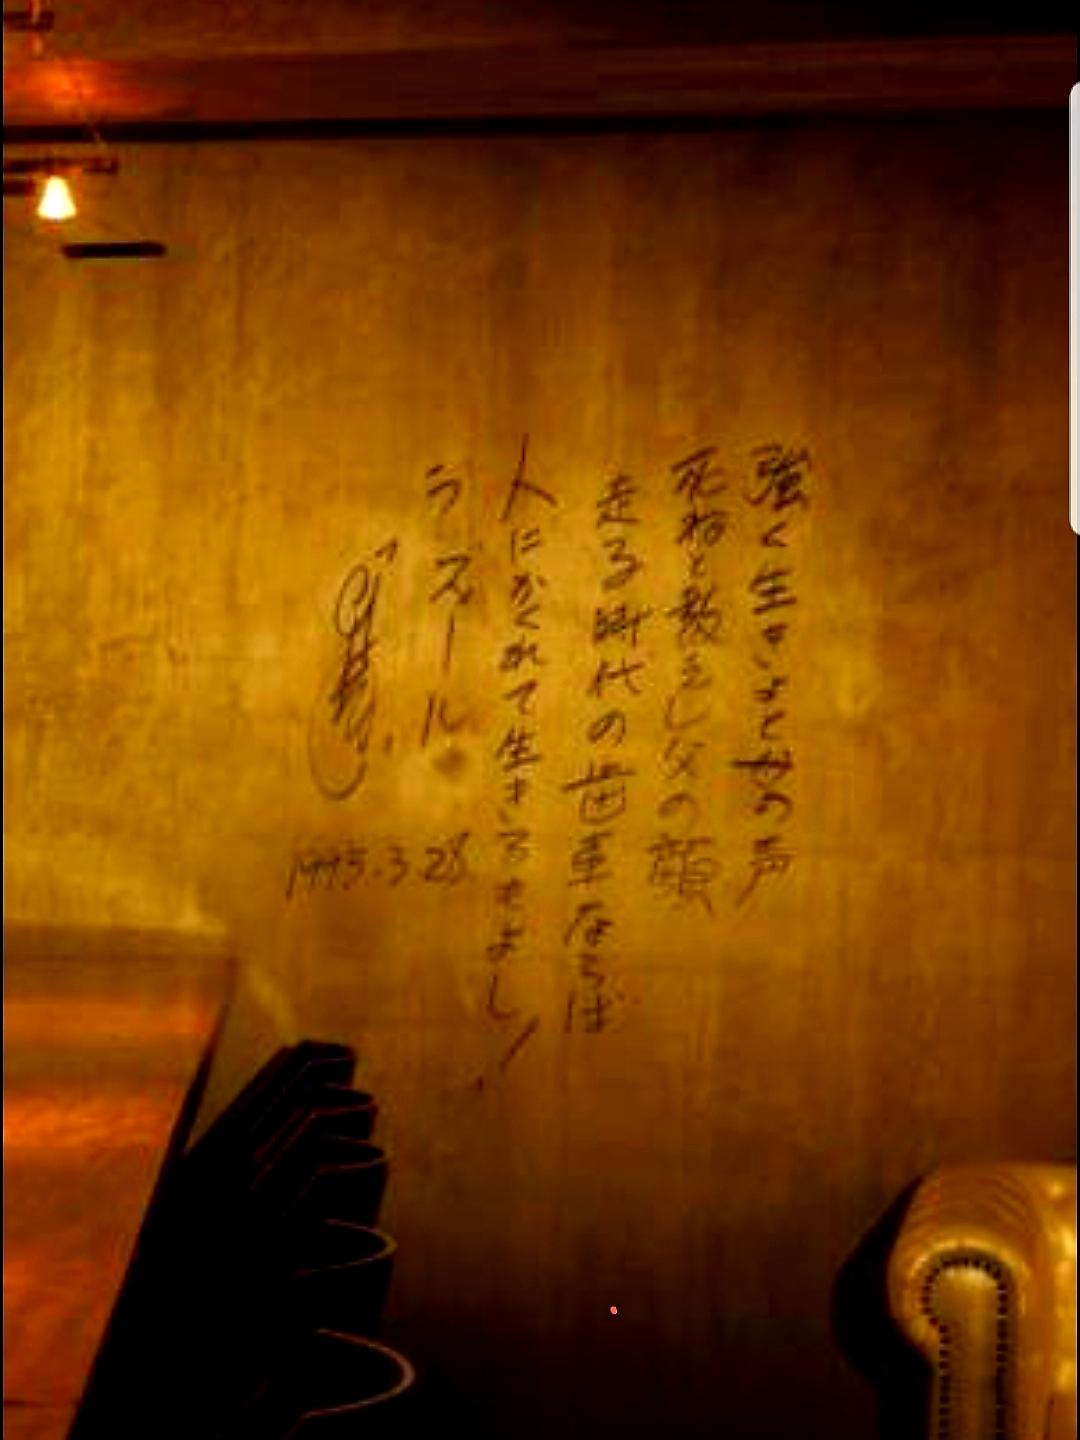 強く生きいよと母の声
死ねと教えし父の顔
走る時代の歯車ならば
人にかくれて生きるもよし!
ラズール
1995.3.28